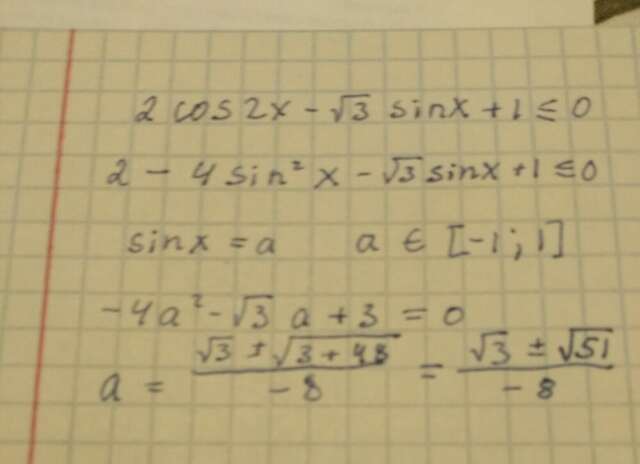 2 cos2x - √3 sinx + 1 ≤ 0
2 - 4 sin² x - √3 sinx + 1 ≤ 0
sinx = a a ∈ [-1; 1]
-4a² - √3 a + 3 = 0
a = (√3 ± √(3 + 48)) / -8 = (√3 ± √51) / -8